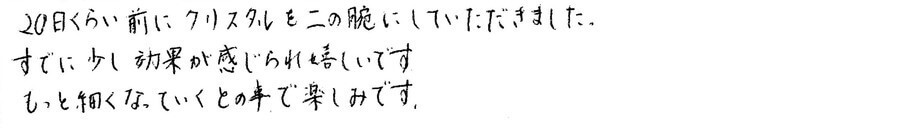 20日くらい前にクリスタルを二の腕にしていただきました。
すでに少し効果が感じられ嬉しいです
もっと細くなっていくとの事で楽しみです。